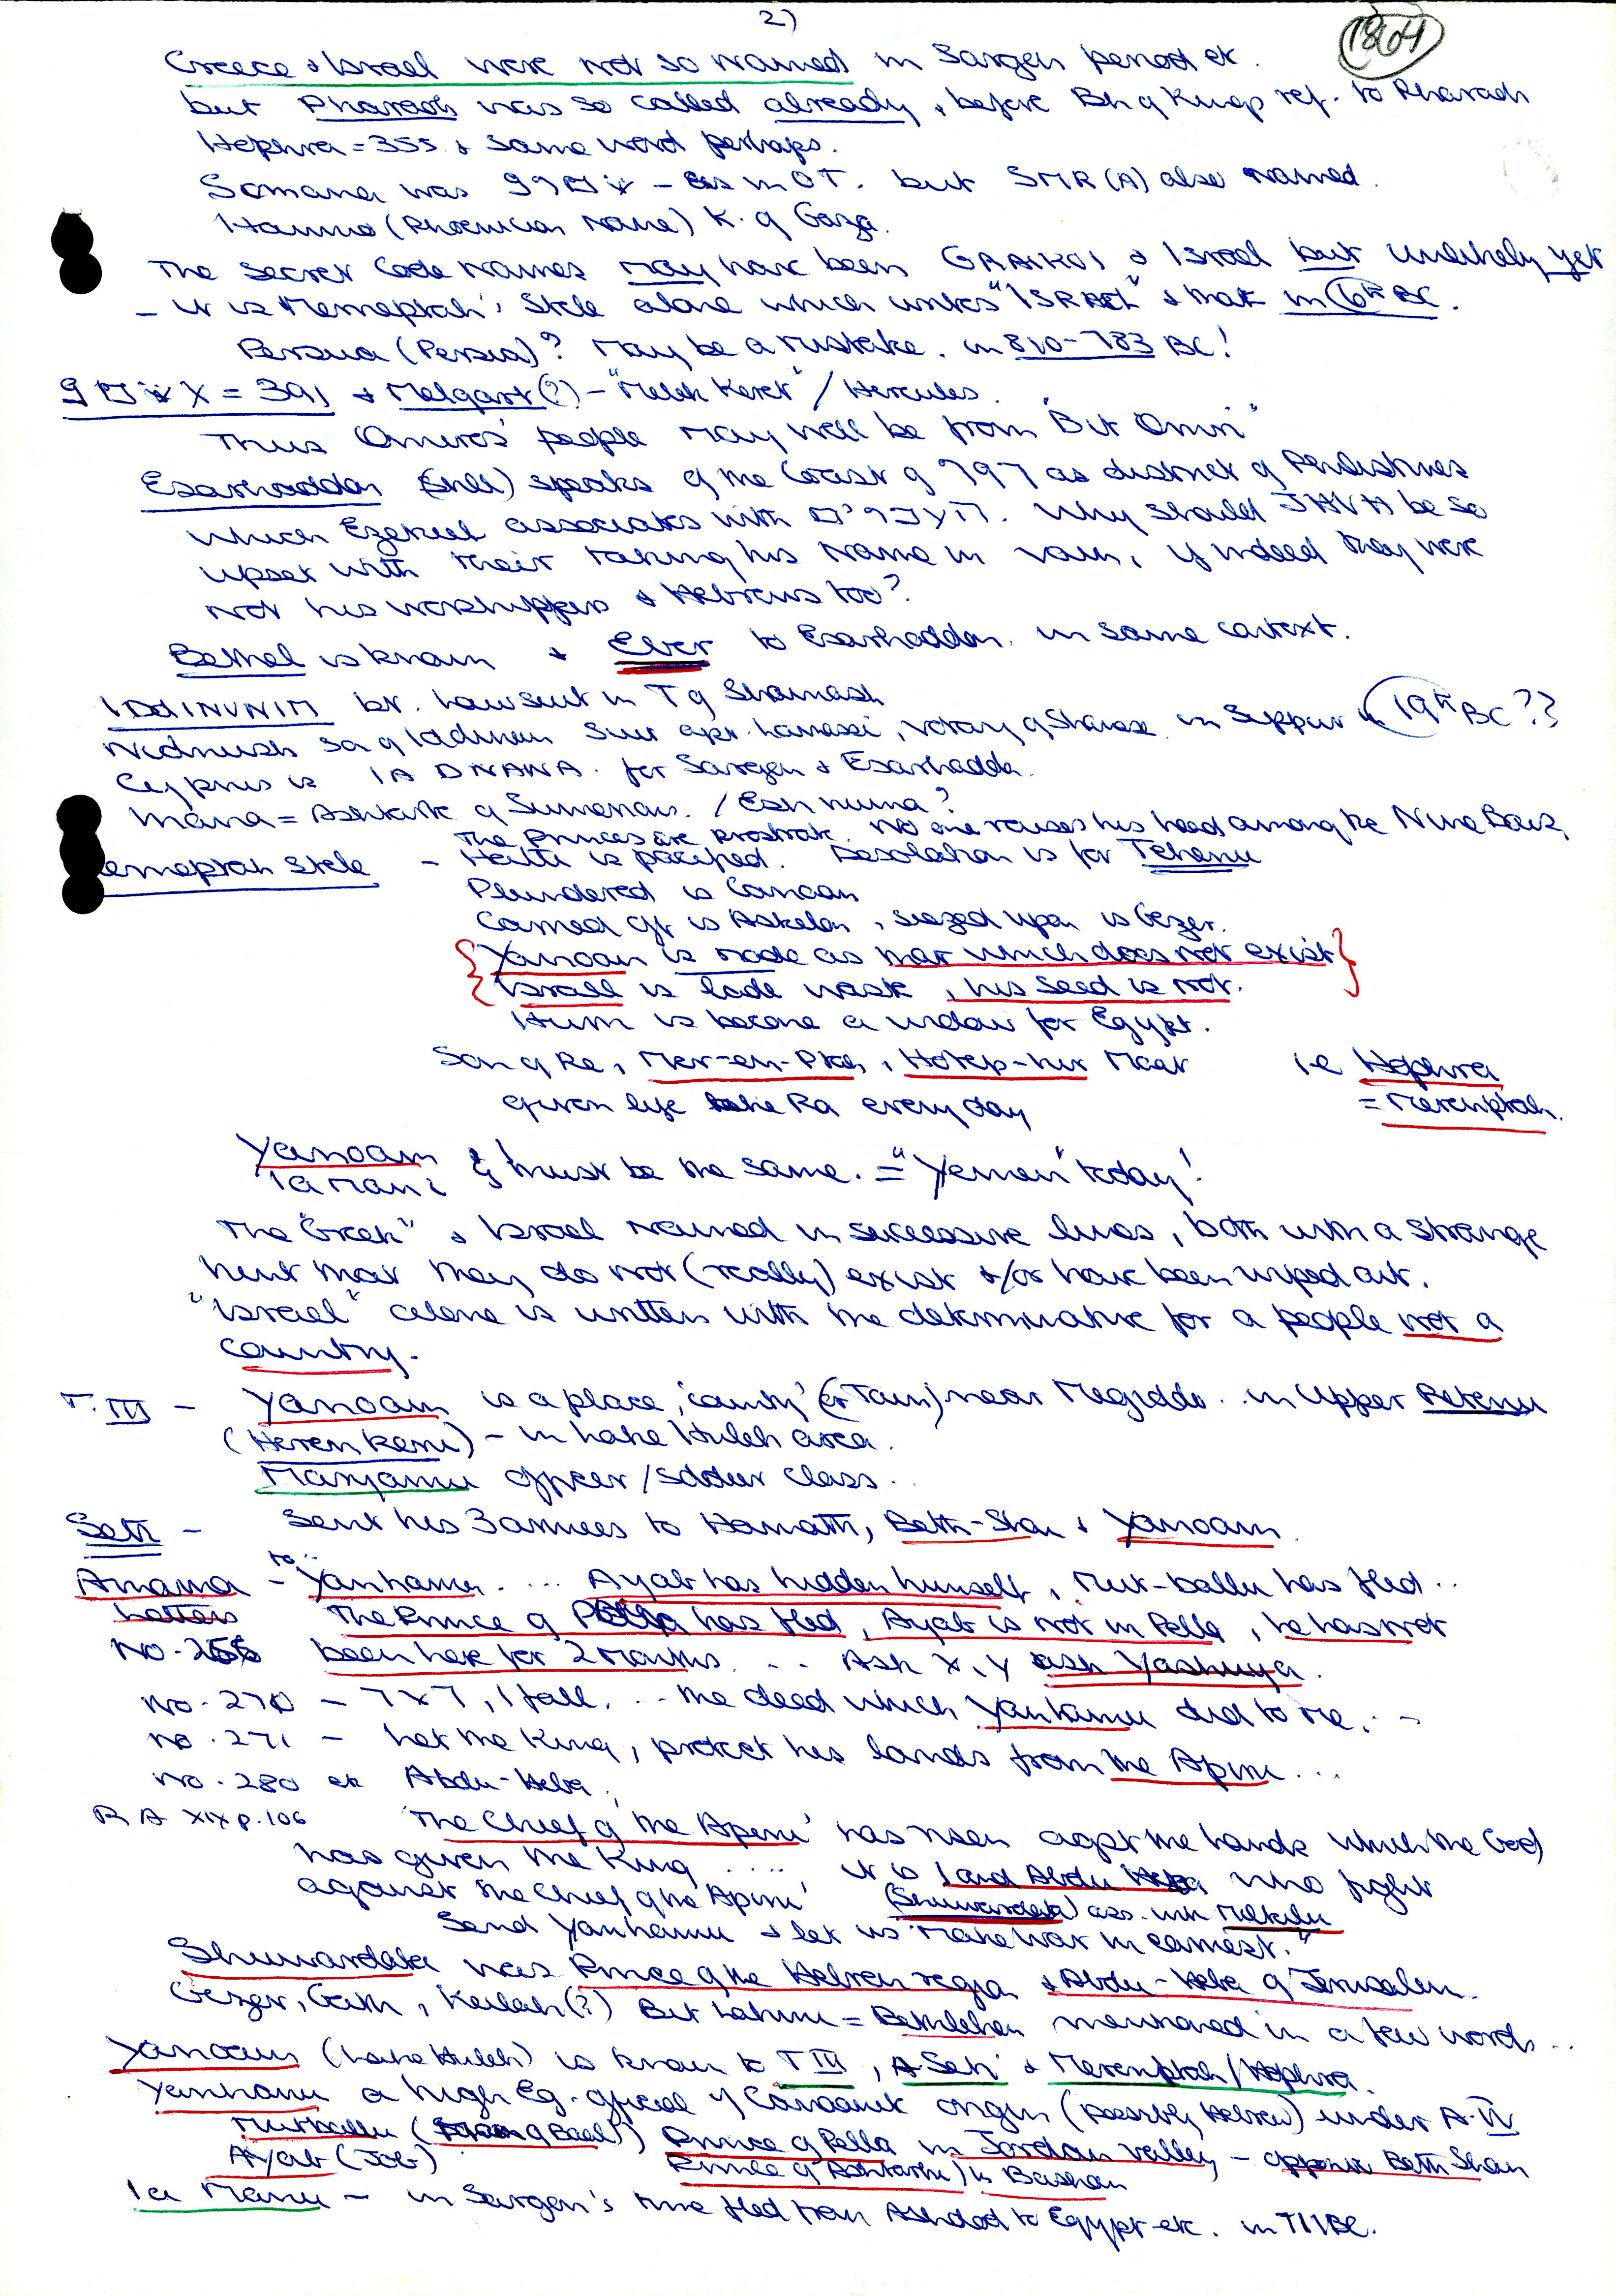 2)
1804
Greece & Israel were not so named in Sargon period etc.
but Pharaoh was so called already, before Bk of Kings ref. to Pharaoh
Hophra = 355 & same word perhaps.
Samaria was - as in OT. but SMR(A) also named.
Hanno (Phoenician Name) K. of Gaza.
The secret Code Names may have been GRAIKOI & Israel but unlikely yet
- it is Merneptah's Stele alone which writes "ISRAEL" & that in 6th BC.
Persua (Persia)? May be a mistake. in 810-783 BC!
= 391 & Melqart(?) - "Melek Keret" / Hercules.
Thus 'Omires' people may well be from "Bit Omri"
Esarhaddon (still) speaks of the Coast of as district of Philistines
which Ezekiel associates with . Why should JHVH be so
upset with their taking his name in vain, if indeed they were
not his worshippers & Hebrews too?
Bethel is known & Eber to Esarhaddon. in same context.
IDdINUNIM br. lawsuit in T of Shamash
Nidnush son of Iddinun , votary of Shamash in Sippur in 19th BC??
Cyprus is IA DNANA. for Sargon & Esarhaddon.
Inana = Ashtarte of Sumerians. / Esh nunna?
The Princes are prostrate. No one raises his head among the Nine Bows,
emeptah Stele - Hatti is pacified. Desolation is for Tehenu
Plundered is Canaan
Carried off is Askelon, seized upon is Gezer.
{Yanoam is made as that which does not exist}
{Israel is laid waste, his seed is not.
Hurru is become a widow for Egypt.
Son of Re, Mer-en-Ptah, Hotep-hir Maat i.e Hophra
given life like Ra every day = Merenptah.
Yanoam
Ia Mani } must be the same. = "Yemen" today!
The "Greek" & Israel named in successive lines, both with a strange
hint that they do not (really) exist &/or have been wiped out.
"Israel" alone is written with the determinative for a people not a
country.
T. III - Yanoam is a place, 'county' (or Town) near Megiddo.. in Upper Retenu
(Herenkeru) - in Lake Huleh area.
Maryannu officer/soldier class.
Seti - Sent his 3 armies to Hamath, Beth-Shan & Yanoam.
Amarna - to.. Yanhamu. ... Ayab has hidden himself, Mut-ballu has fled ..
Letters The Prince of Pella has fled, Ayab is not in Pella, he has not
No. 256 been here for 2 months. ... Ask X, Y ask Yashuya.
No. 270 - 7x7, I fall. ... the deed which Yanhamu did to me. . -
no. 271 - Let the King, protect his lands from the Apiru ...
no. 280 etc Abdu-Heba.
RA XIX p. 106 'The Chief of the Apiru' has risen agst the lands which the God
has given the King ...., it is I and Abdu Heba who fight
against the Chief of the 'Apiru' (Shuwardata) ass. with Milkilu
Send Yanhamu & let us make War in earnest."
Shuwardata was Prince of the Hebron region & Abdu-Heba of Jerusalem.
Gezer, Gath, Keilah(?) Bit Lahmi = Bethlehem mentioned in a few words ...
Yanoam (Lake Huleh) is known to T III, A Seti & Merenptah/Hophra.
Yanhamu a high Eg. official of Canaanite origin (possibly Hebrew) under A. IV
Mutballu ( of Baal) Prince of Pella in Jordan valley - opposite Beth Shan
Ayab (Job) Prince of Ashtartu in Bashan
Ia Manu - in Sargon's time fled from Ashdod to Egypt etc. in 711 BC.